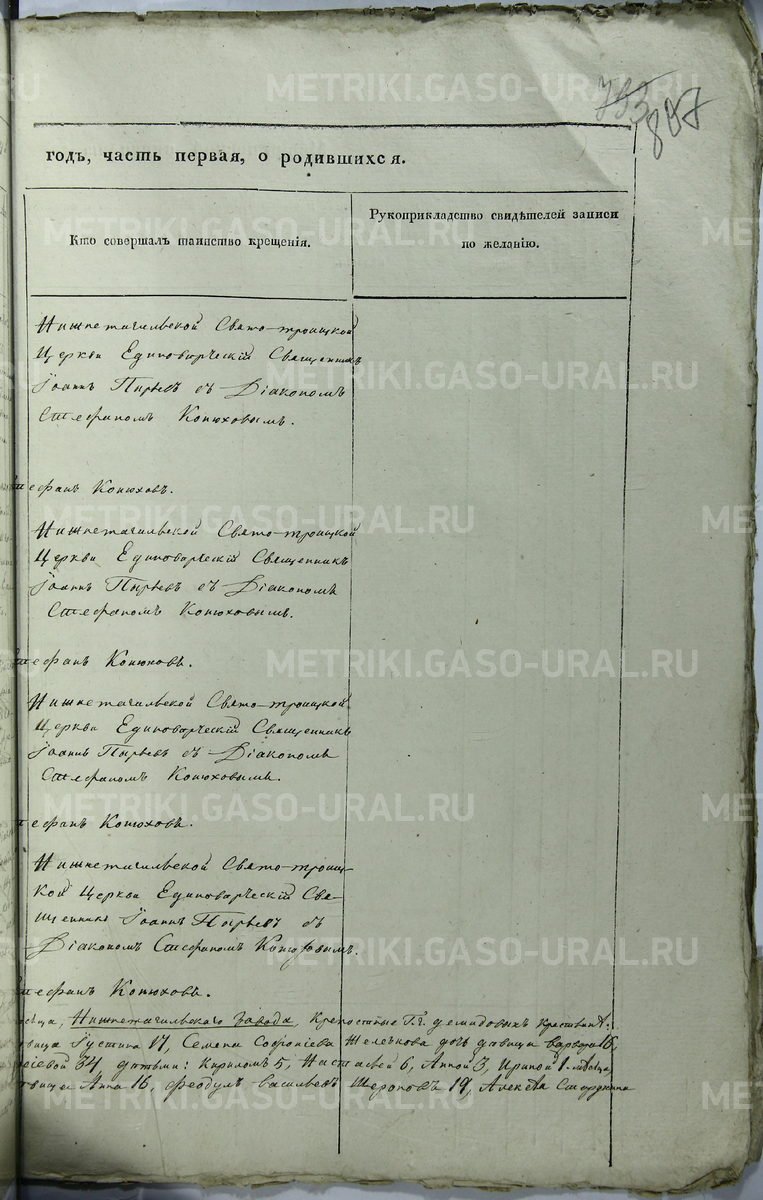 793
807
годъ, часть первая, о родившихся.
Кто совершалъ таинство крещенія.
Рукоприкладство свидѣтелей записи
по желанію.
Нижнетагильской Свято-троицкой
Церкви Единоверческій Священникъ
Іоаннъ Пырьевъ съ Діакономъ
Стефаномъ Конюховымъ.
тефанъ Конюховъ.
Нижнетагильской Свято-троицкой
Церкви Единоверческій Священникъ
Іоаннъ Пырьевъ съ Діакономъ
Стефаномъ Конюховымъ.
тефанъ Конюховъ.
Нижнетагильской Свято-троицкой
Церкви Единоверческій Священникъ
Іоаннъ Пырьевъ съ Діакономъ
Стефаномъ Конюховымъ.
тефанъ Конюховъ.
Нижнетагильской Свято-троиц-
кой Церкви Единоверческій Свя-
щенникъ Іоаннъ Пырьевъ съ
Діакономъ Стефаномъ Конюховымъ.
тефанъ Конюховъ.
Нижнетагильскаго Завода, Крепостные Г.г. Демидовыхъ
вица Іустина 17, Семена Софоніева дочь девица Варвара 16,
34 детьми: Кириломъ 5, Настасьей 6, Анной 3, Ириной 1-месяца,
Анна 16, Феодулъ Васильевъ 19, Алексѣя
METRIKI.GASO-URAL.RU